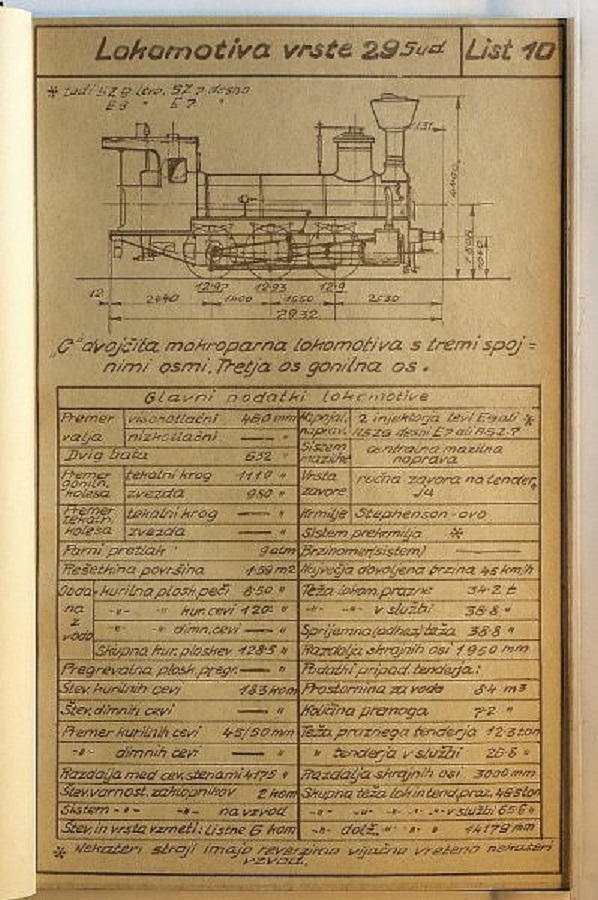 Lokomotiva vrste 29 Sud List 10
E9 " E7 "
131
12·97 12·93 12·9
12 2440 1400 1550 2530
"C" dvojčita mokroparna lokomotiva s tremi spoj=
nimi osmi. Tretja os gonilna os.
Glavni podatki lokomotive
Premer valja visokotlačni 460 mm
nizkotlačni — "
Dvig bata 632 "
Premer goniln. kolesa tekalni krog 1110 "
zvezda 980 "
Premer tekaln. kolesa tekalni krog — "
zvezda — "
Parni pretlak 9 atm
Rešetkina površina 1·59 m2
na vodo kurilna plosk. peči 8·50 "
-"- -"- kur. cevi 120· "
-"- dimn. cevi — "
Skupna kur. ploskev 128·5 "
Pregrevalna plosk. pregr. — "
Štev. kurilnih cevi 183 kom
Štev. dimnih cevi — "
Premer kurilnih cevi 45/50 mm
-"- dimnih cevi — "
Razdalja med cev. stenami 4175 "
Štev. varnost. zaklopnikov 2 kom
Sistem -"- -"- na vzvod
Štev. in vrsta vzmeti: Listne 6 kom
Napajal. napravi 2 injektorja levi E9 ali *
Sistem mazilne centralna mazilna
naprava
Vrsta zavore ročna zavora na tender
Krmilje Stephenson-ovo
Sistem prekrmilja *
Brzinomer (sistem) —
Največja dovoljena brzina 45 km/h
Teža lokom. prazne 34·2 t
-"- -"- v službi 38·8 "
Sprijemna (adhez) teža 38·8 "
Razdalja skrajnih osi
Podatki pripad. tenderja:
Prostornina za vodo 8·4 m3
Količina premoga 7·2 "
Teža praznega tenderja 12·3 ton
" tenderja v službi 26·8 "
Razdalja skrajnih osi 3000 mm
Skupna teža lok in tend. praz. 46 ton
-"- -"- -"- v službi 65·6 "
-"- dolž. -"- " " 14179 mm
* Nekateri stroji imajo reverzirno vijačno vreteno nekateri
vzvod.